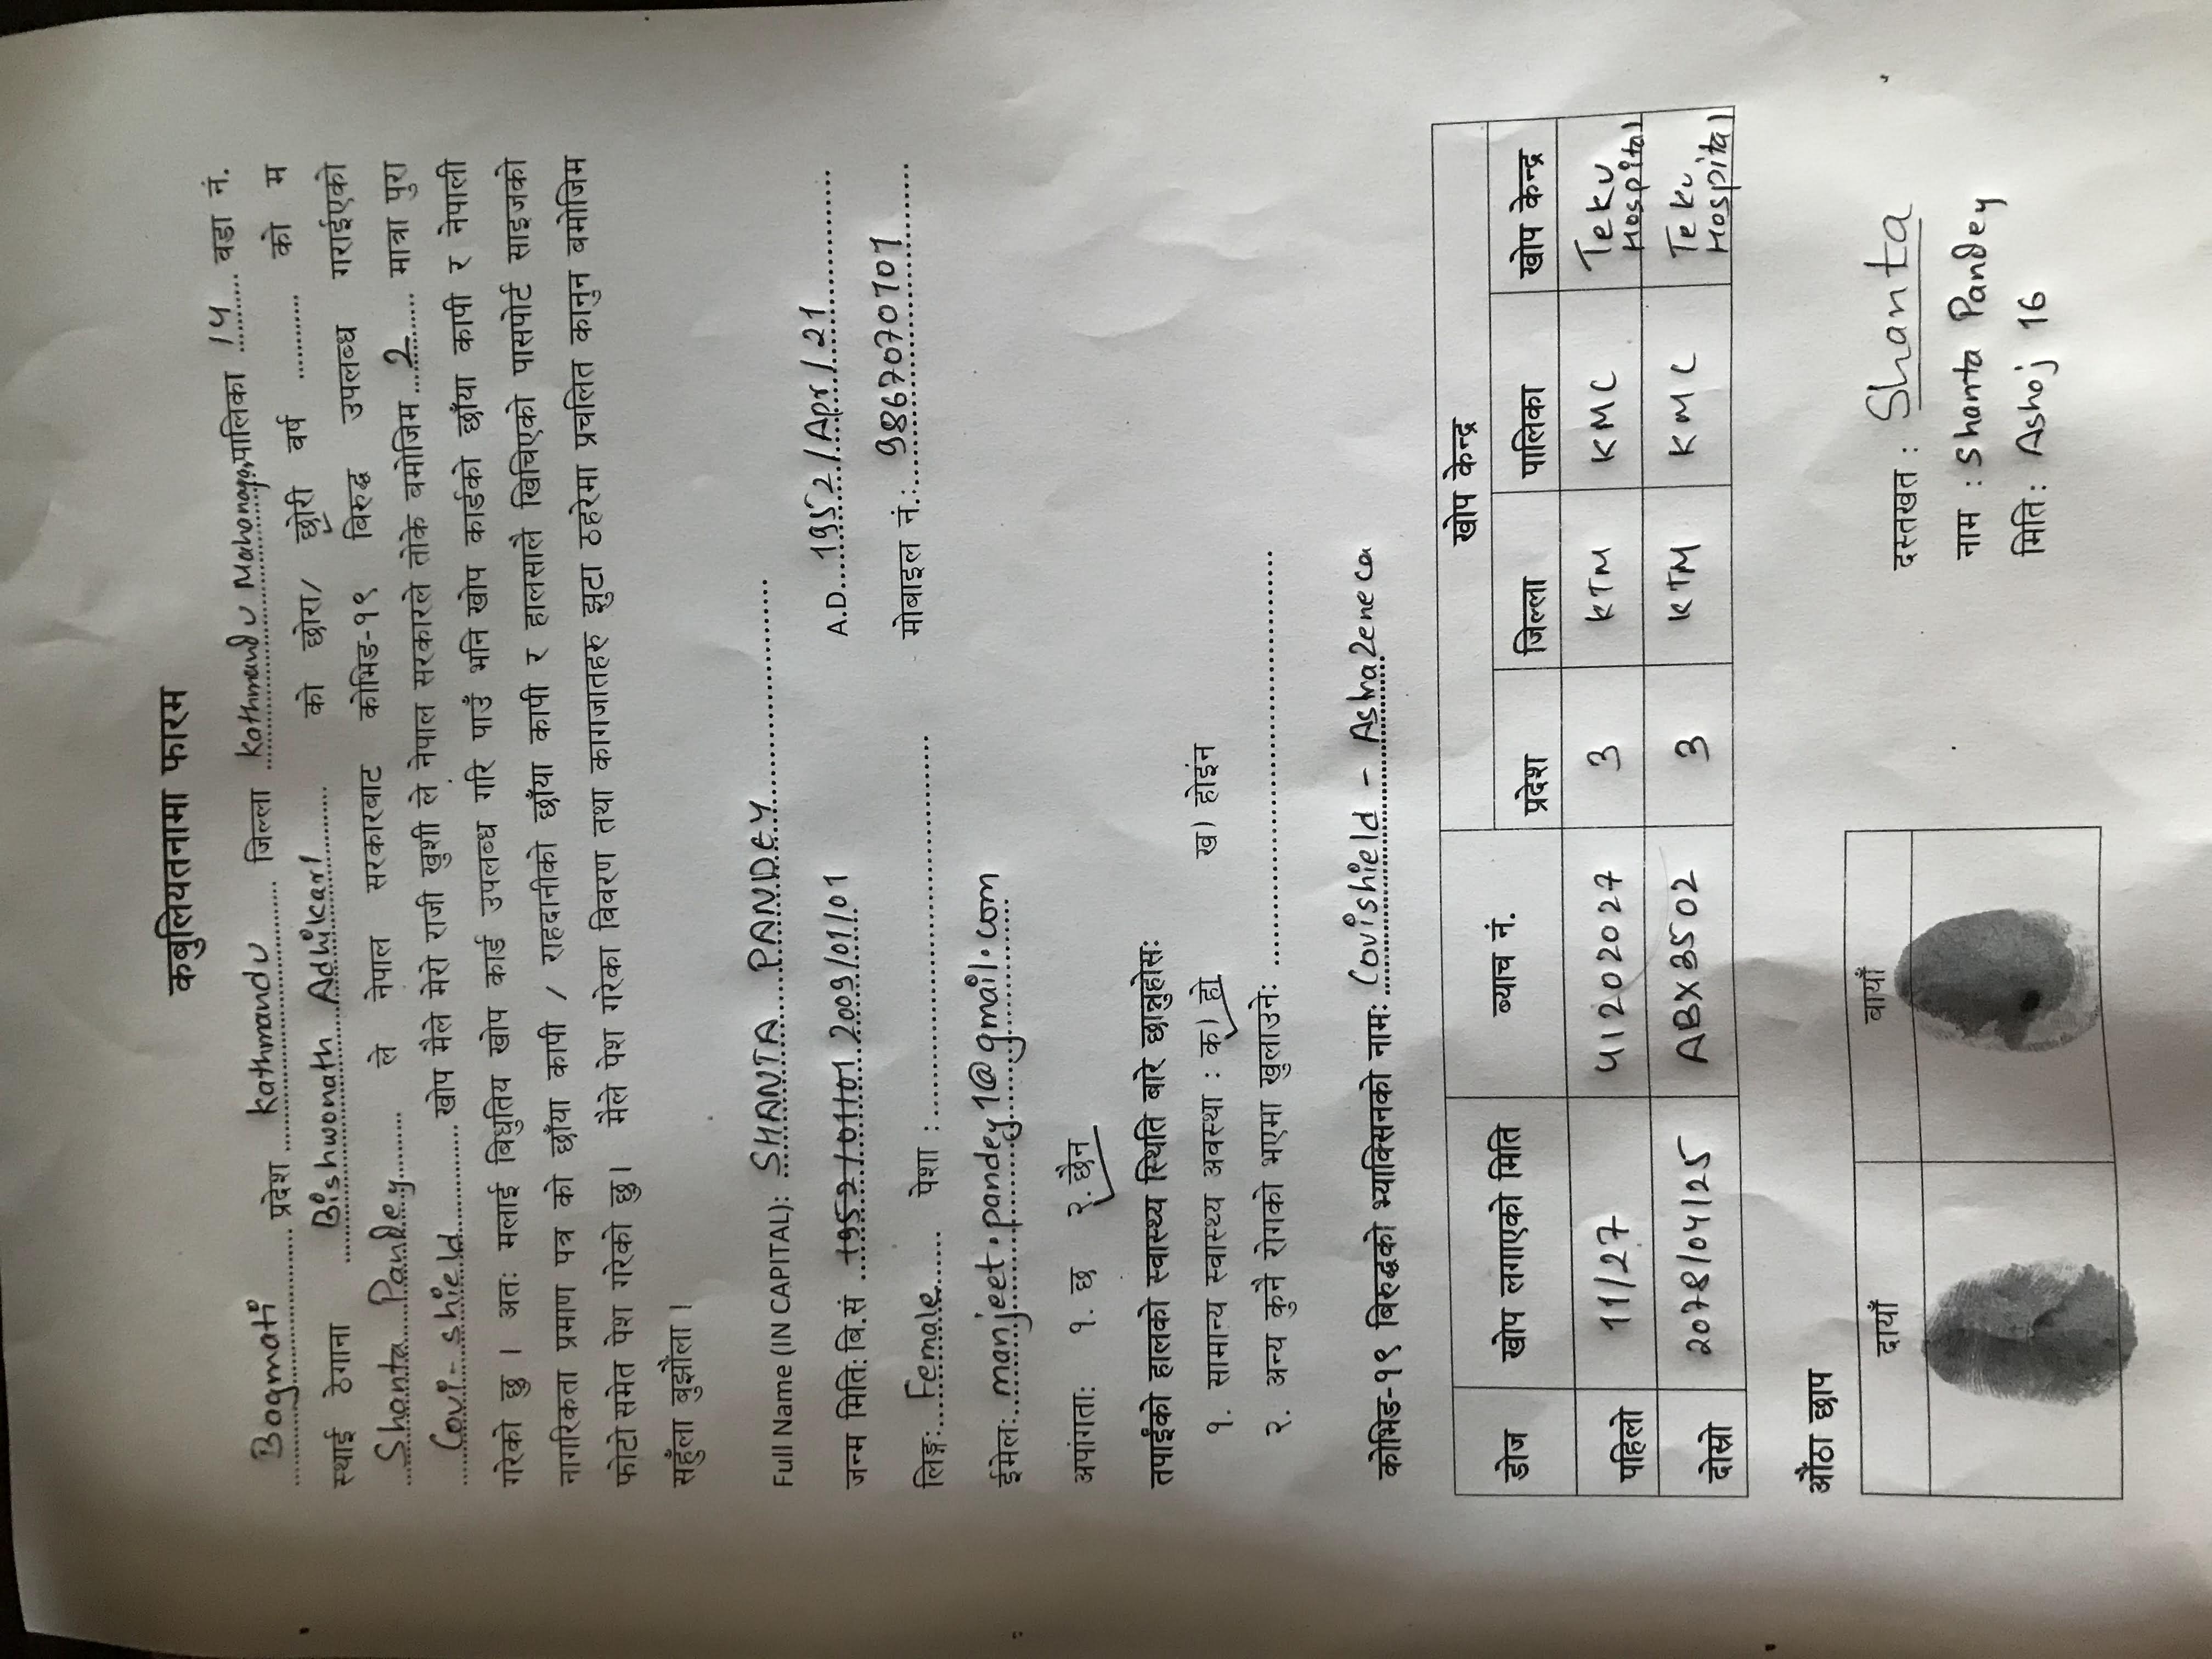 कबुलियतनामा फारम
Bagmati प्रदेश Kathmandu जिल्ला Kathmandu Mahanagar पालिका 14 वडा नं.
स्थाई ठेगाना Bishwonath Adhikari को छोरा/ छोरी वर्ष ............ को म
Shanta Pandey ले नेपाल सरकारबाट कोभिड-१९ बिरुद्ध उपलब्ध गराईएको
Covi-shield खोप मैले मेरो राजी खुशी ले नेपाल सरकारले तोके बमोजिम 2 मात्रा पुरा
गरेको छु । अतः मलाई बिधुतिय खोप कार्ड उपलब्ध गरि पाउँ भनि खोप कार्डको छाँया कापी र नेपाली
नागरिकता प्रमाण पत्र को छाँया कापी / राहदानीको छाँया कापी र हालसालै खिचिएको पासपोर्ट साइजको
फोटो समेत पेश गरेको छु। मैले पेश गरेका विवरण तथा कागजातहरु झुटा ठहरेमा प्रचलित कानुन बमोजिम
सहुँला बुझौंला ।
Full Name (IN CAPITAL): SHANTA PANDEY
जन्म मिति: बि.सं 1952/01/01 2009/01/01 A.D. 1952/Apr/21
लिङ्ग: Female पेशा : ............ मोबाइल नं.: 9867070101
ईमेल: manjeet.pandey1@gmail.com
अपांगता: १. छ २. छैन
तपाईंको हालको स्वास्थ्य स्थिति बारे छान्नुहोस:
१. सामान्य स्वास्थ्य अवस्था : क) हो ख) होइंन
२. अन्य कुनै रोगको भएमा खुलाउने: ............
कोभिड-१९ बिरुद्धको भ्याक्सिनको नाम: Covishield - AstraZeneca
डोज खोप लगाएको मिति ब्याच नं. खोप केन्द्र
प्रदेश जिल्ला पालिका खोप केन्द्र
पहिलो 11/27 41202027 3 KTM KMC Teku Hospital
दोस्रो 2078/04/25 ABX3502 3 KTM KMC Teku Hospital
औंठा छाप
दायाँ बायाँ
दस्तखत : Shanta
नाम : Shanta Pandey
मिति : Ashoj 16